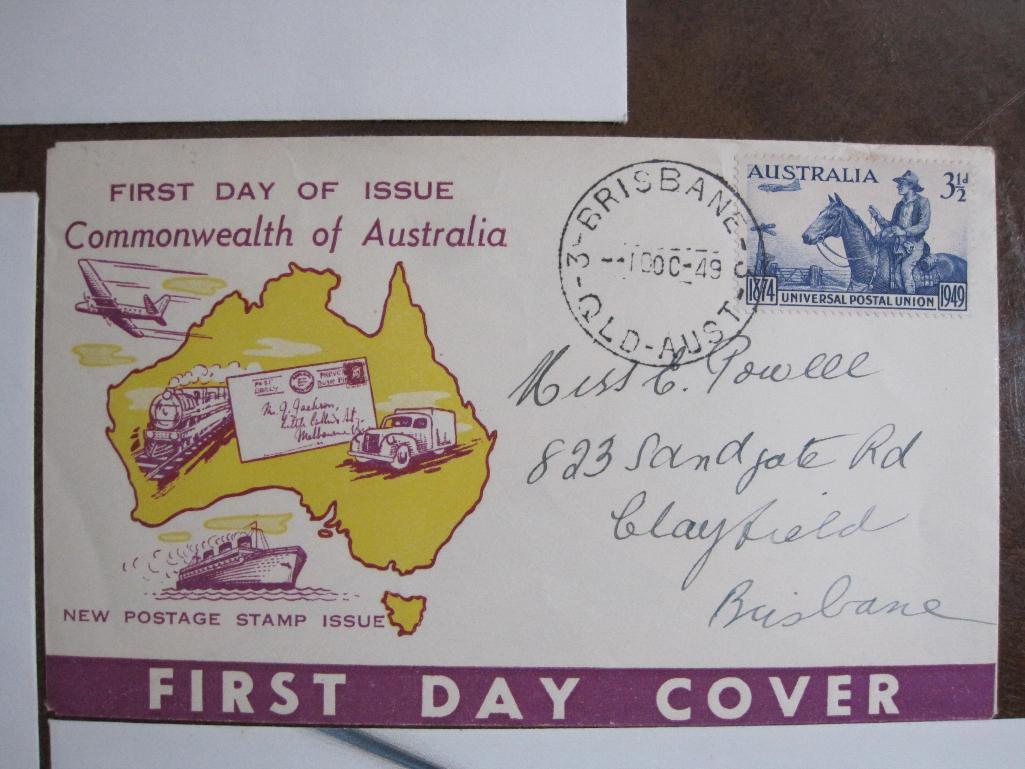 FIRST DAY OF ISSUE
Commonwealth of Australia
POST EARLY
M. J. Jackson,
Little Collins St.,
Melbourne
NEW POSTAGE STAMP ISSUE
BRISBANE
-3-
10OC-49
QLD-AUST
AUSTRALIA
3½d
1874 UNIVERSAL POSTAL UNION 1949
Miss E. Powell
823 Sandgate Rd
Clayfield
Brisbane
FIRST DAY COVER